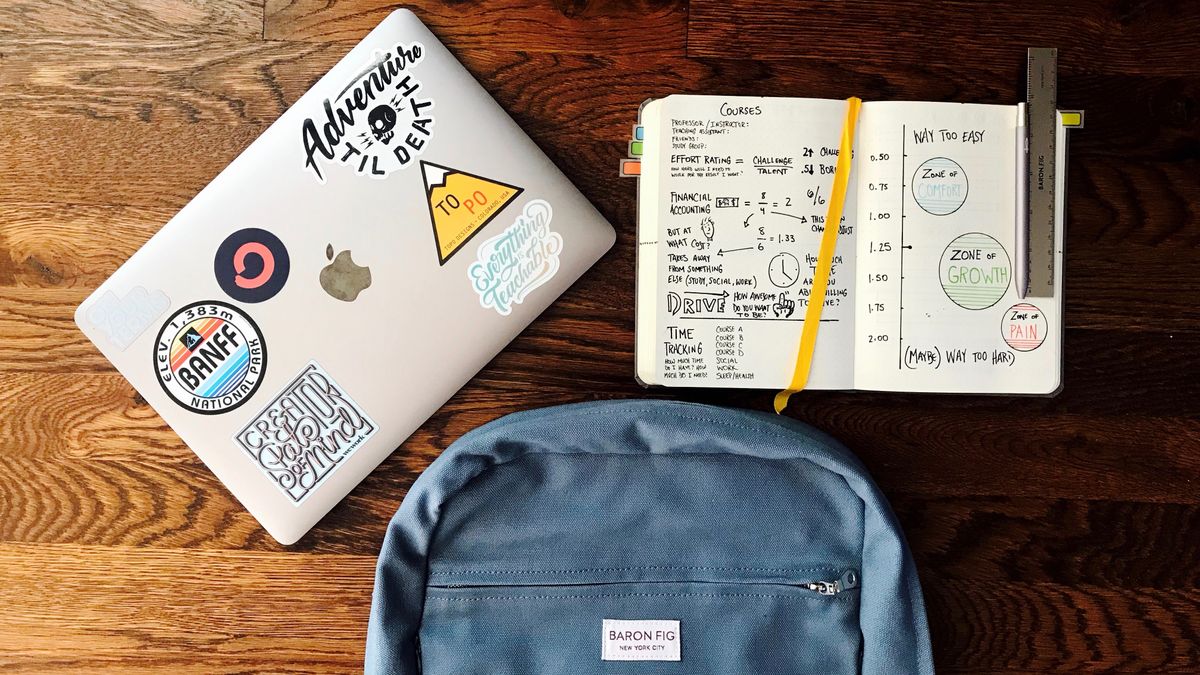 Adventure
'TIL DEATH
TO PO
TOPO DESIGNS - COLORADO, USA
Everything
is
Teachable
ELEV. 1,383m
BANFF
NATIONAL PARK
CREATOR
Pas
of Mind
wework
COURSES
PROFESSOR / INSTRUCTOR:
TEACHING ASSISTANT:
FRIENDS:
STUDY GROUP:
EFFORT RATING = CHALLENGE
TALENT
HOW HARD WILL I NEED TO
WORK FOR THE RESULT I WANT?
2↑
.5↓
FINANCIAL
ACCOUNTING
8
4
= 2
6/6
BUT AT
WHAT COST?
8
6
= 1.33
TAKES AWAY
FROM SOMETHING
ELSE (STUDY, SOCIAL, WORK)
DRIVE
HOW AWESOME
DO YOU WANT
TO BE?
TIME
TRACKING
HOW MUCH TIME
DO I HAVE? HOW
MUCH DO I NEED?
COURSE A
COURSE B
COURSE C
COURSE D
SOCIAL
WORK
SLEEP/HEALTH
WAY TOO EASY
0.50
0.75
1.00
1.25
1.50
1.75
2.00
ZONE OF
COMFORT
ZONE OF
GROWTH
ZONE OF
PAIN
(MAYBE) WAY TOO HARD
BARON FIG
BARON FIG
NEW YORK CITY